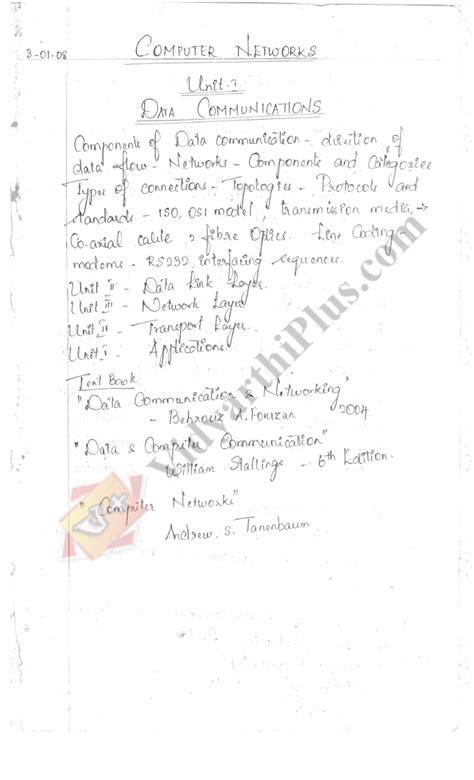 3-01-08
COMPUTER NETWORKS
Unit-I
DATA COMMUNICATIONS
Components of Data communication - direction of
data flow - Networks - Components and Categories
Types of connections - Topologies - Protocols and
standards - ISO, OSI model, transmission media, →
Co-axial cable, fibre Optics. Line Coding -
modems - RS232 interfacing sequences.
Unit II - Data Link Layer.
Unit III - Network Layer
Unit - Transport Layer
Unit - Applications.
Text Book
"Data Communication & Networking"
- Behrouz A. Foruzan 2004
"Data & Computer Communication"
William Stallings - 6th Edition.
"Computer Networks"
Andrew. S. Tanenbaum
VidyarthiPlus.com
V+